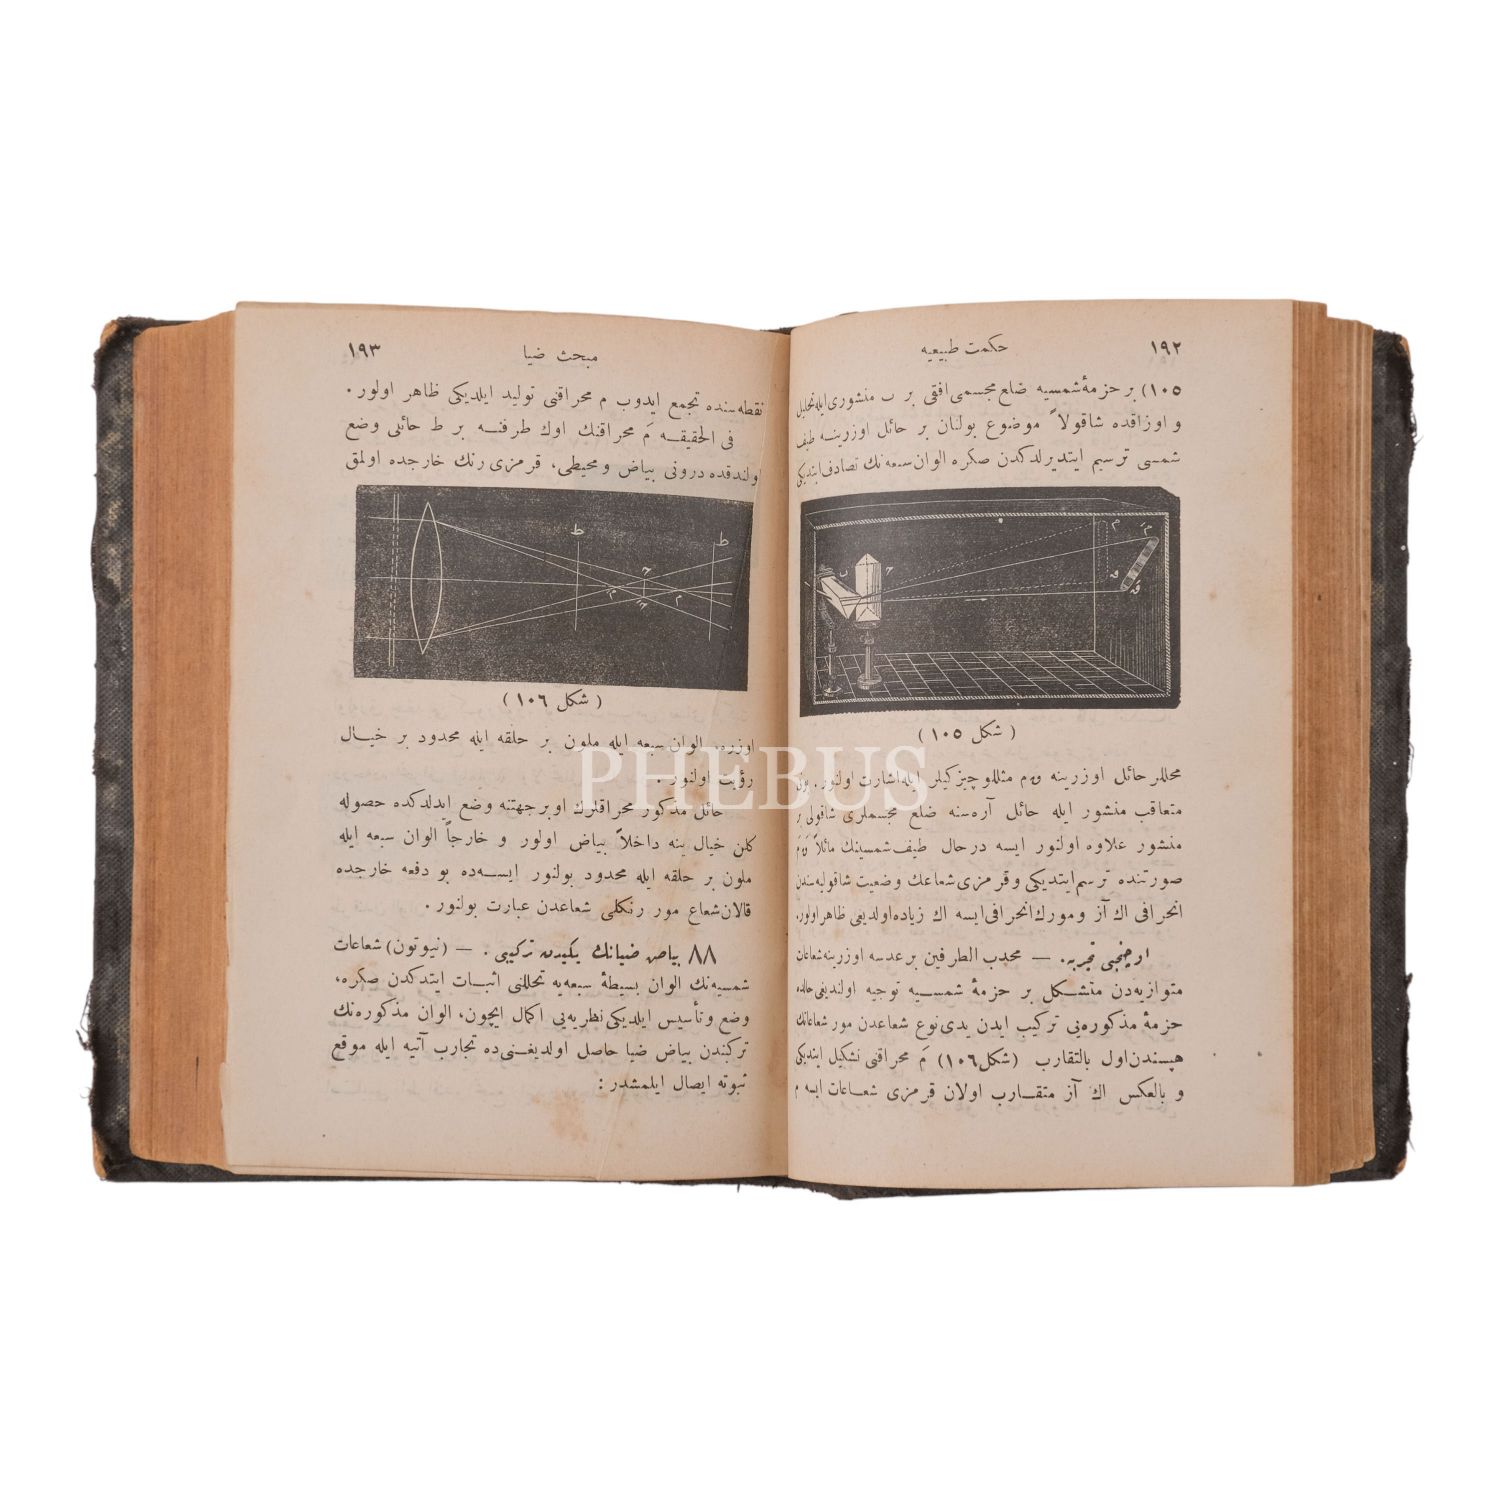 ١٩٢
حكمت طبيعيه
١٠٥) بر حزمۀ شمسيه ضلع مجسمى افقى بر ب منشورى ايله تحليل
و اوزاقده شاقولاً موضوع بولنان بر حائل اوزرينه طيف
شمسى ترسيم ايتديرلدكدن صكره الوان سبعه نك تصادف ايتديكى
( شكل ١٠٥ )
محللر حائل اوزرينه م مثللو چيزكيلر ايله اشارت اولنور.
متعاقب منشور ايله حائل آره سنه ضلع مجسملرى شاقولى
منشور علاوه اولنور ايسه درحال طيف شمسينك مائلاً
صورتنده ترسم ايتديكى و قرمزى شعاعك وضعيت شاقوليه سندن
انحرافى اك آز و مورك انحرافى ايسه اك زياده اولديغى ظاهر اولور.
اوچنجى تجربه . — محدب الطرفين بر عدسه اوزرينه شعاعات
متوازيه دن متشكل بر حزمۀ شمسيه توجيه اولنديغى حالده
حزمۀ مذكوره يى تركيب ايدن يدى نوع شعاعدن مور شعاعاتك
هپسندن اول بالتقارب (شكل ١٠٦) مَ محراقنى تشكيل ايتديكى
و بالعكس اك آز متقارب اولان قرمزى شعاعات ايسه م
مبحث ضيا
١٩٣
نقطه سنده تجمع ايدوب م محراقنى توليد ايلديكى ظاهر اولور .
فى الحقيقه مَ محراقنك اوك طرفنه بر ط حائلى وضع
اولندقده درونى بياض و محيطى، قرمزى رنك خارجده اولمق
ط
ط
( شكل ١٠٦ )
اوزره، الوان سبعه ايله ملون بر حلقه ايله محدود بر خيال
رؤيت اولنور .
حائل مذكور محراقلرك اوبر جهتنه وضع ايدلدكده حصوله
كلن خيال ينه داخلاً بياض اولور و خارجاً الوان سبعه ايله
ملون بر حلقه ايله محدود بولنور ايسه ده بو دفعه خارجده
قالان شعاع مور رنكلى شعاعدن عبارت بولنور .
٨٨ بياض ضيانك يكيدن تركيبى . — (نيوتون) شعاعات
شمسيه نك الوان بسيطۀ سبعه يه تحللنى اثبات ايتدكدن صكره،
وضع و تأسيس ايلديكى نظريه يى اكمال ايچون، الوان مذكوره نك
تركبندن بياض ضيا حاصل اولديغنى ده تجارب آتيه ايله موقع
ثبوته ايصال ايلمشدر :
PHEBUS